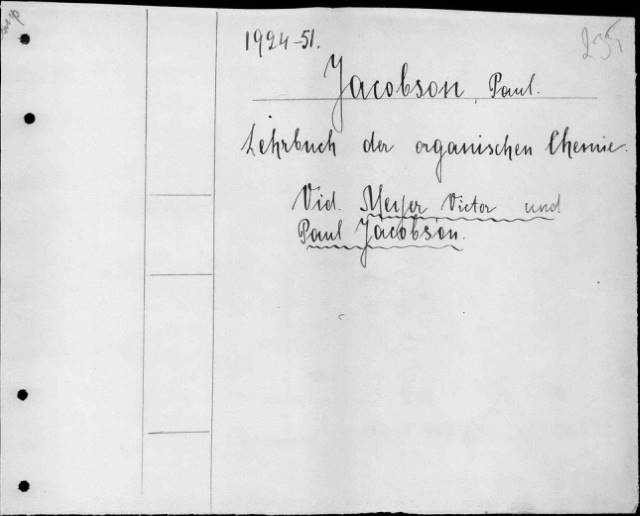 1924-51.
235
Jacobson, Paul.
Lehrbuch der organischen Chemie.
Vid. Meyer Victor und
Paul Jacobson.